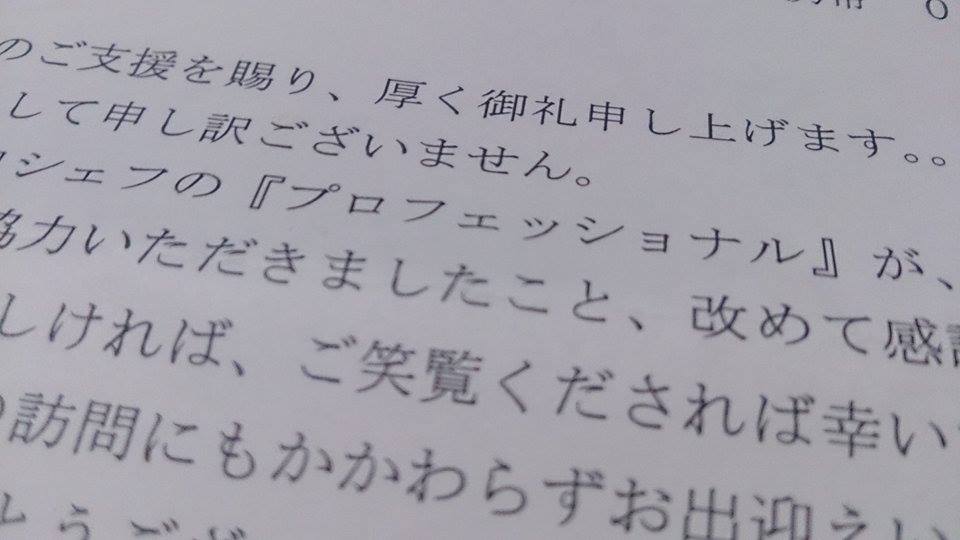 のご支援を賜り、厚く御礼申し上げます。。
して申し訳ございません。
シェフの『プロフェッショナル』が、
協力いただきましたこと、改めて感謝
しければ、ご笑覧くだされば幸い
訪問にもかかわらずお出迎えい